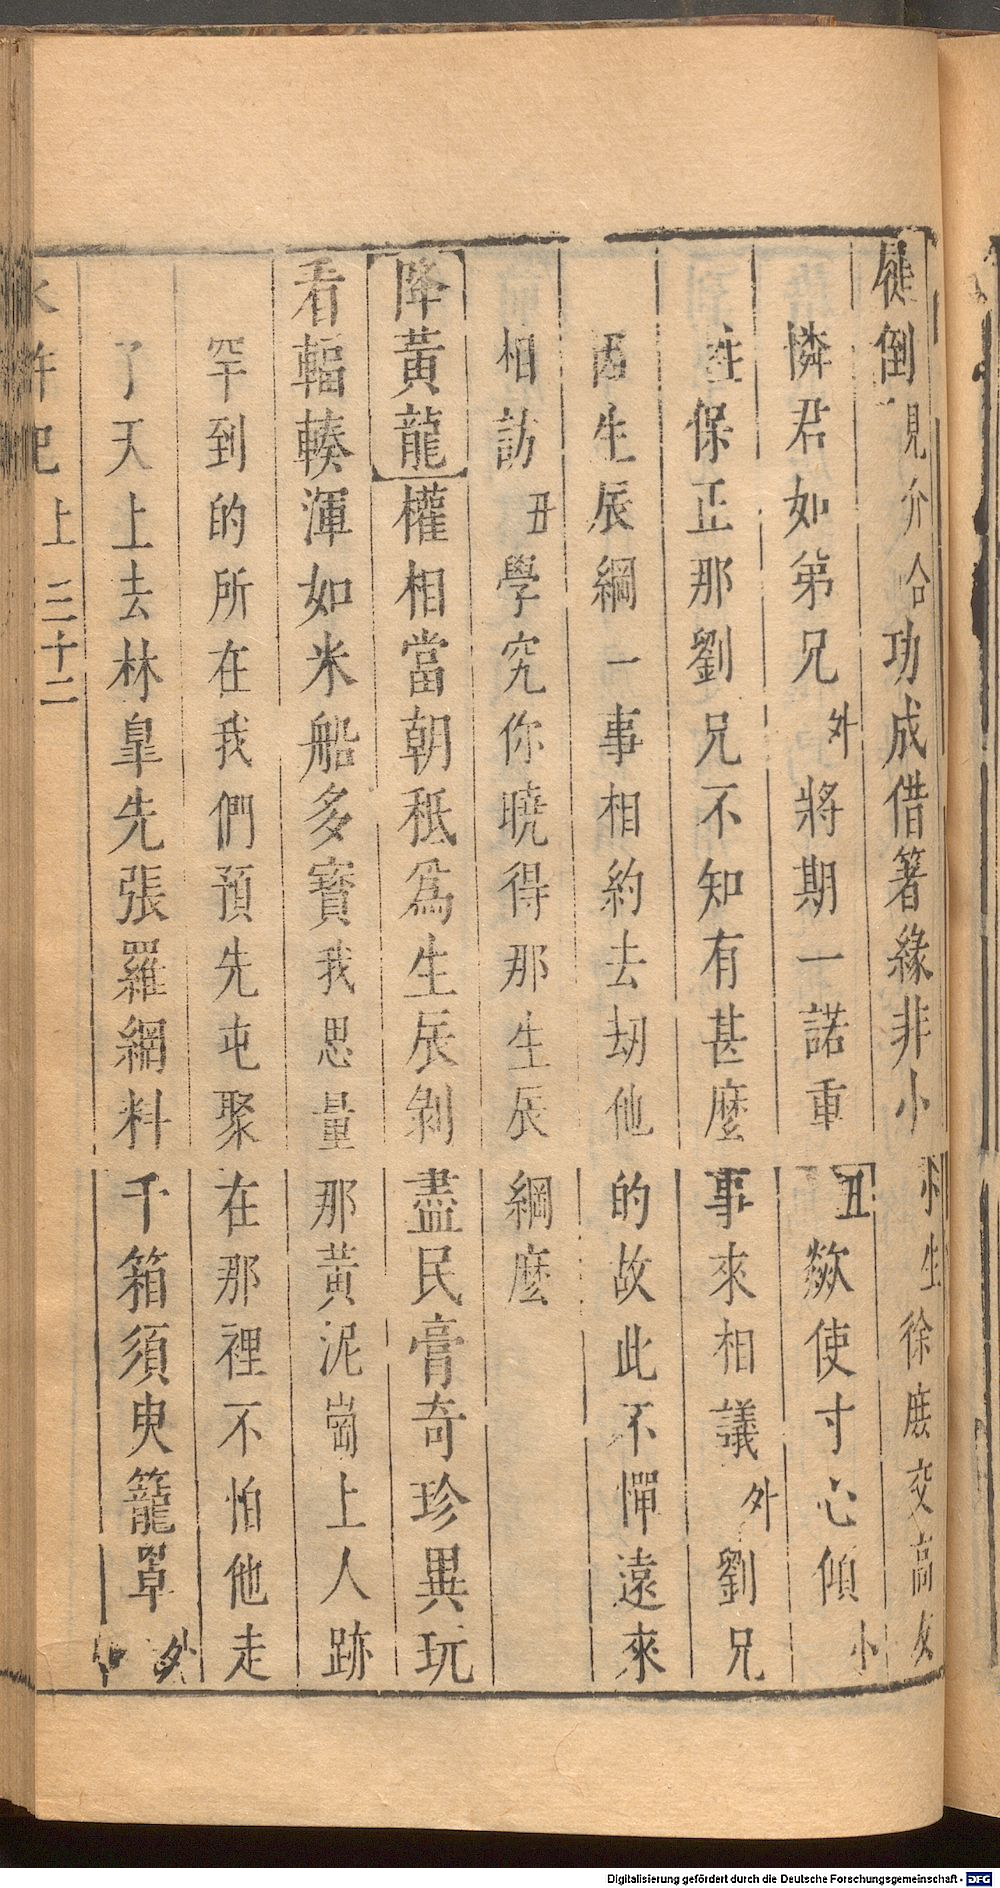 屣倒見介合功成借箸緣非小生徐庶交高友
憐君如第兄外將期一諾重丑歘使寸心傾小
生保正那劉兄不知有甚麼事來相議外劉兄
因生辰綱一事相約去刼他的故此不憚遠來
相訪丑學究你曉得那生辰綱麼
降黃龍權相當朝秪爲生辰剝盡民膏奇珍異玩
看輻輳渾如米船多寶我思量那黃泥崗上人跡
罕到的所在我們預先屯聚在那裡不怕他走
了天上去林皐先張羅網料千箱須臾籠罩外
水滸記上三十二
Digitalisierung gefördert durch die Deutsche Forschungsgemeinschaft - DFG